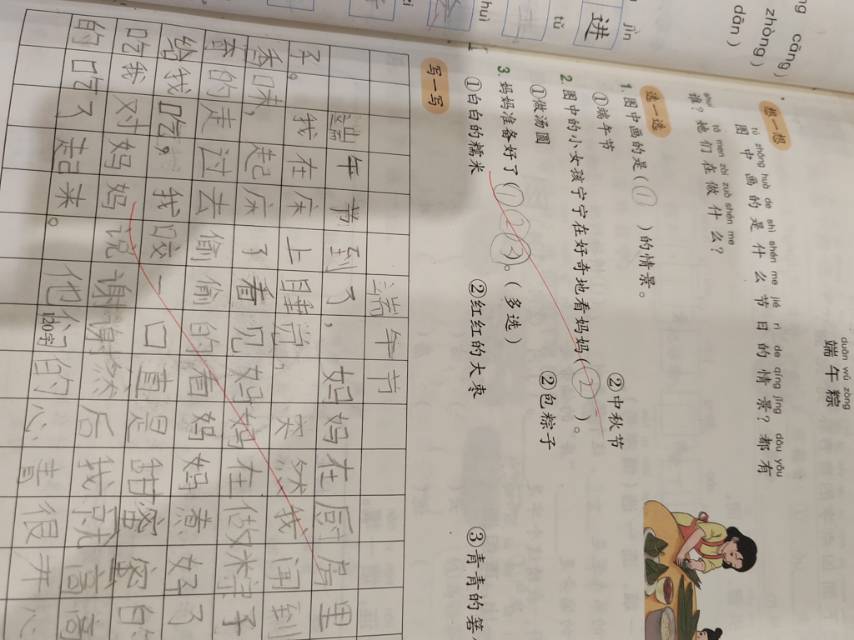 ng cāng)
zhòng)
dān)
jìn
进
tǔ
huì
duān wǔ zòng
端午粽
想一想
tú zhōng huà de shì shén me jié rì de qíng jǐng? dōu yǒu
图中画的是什么节日的情景？都有
shuí? tā men zài zuò shén me
谁？她们在做什么？
选一选
1. 图中画的是(①)的情景。
①端午节 ②中秋节
2. 图中的小女孩宁宁在好奇地看妈妈(②)。
①做汤圆 ②包粽子
3. 妈妈准备好了(①②③)。(多选)
①白白的糯米 ②红红的大枣 ③青青的箬
写一写
端午节
端午节到了，妈妈在厨房里
子。我在床上睡觉，突然我闻到
香味，起床了看见妈妈在做米粽子
香的走过去偷偷的看妈妈煮好了
给我吃，我咬一口真是甜蜜蜜的
吃我对妈妈说谢谢然后我就高高
的吃了起来。他们的心里很开心
120字